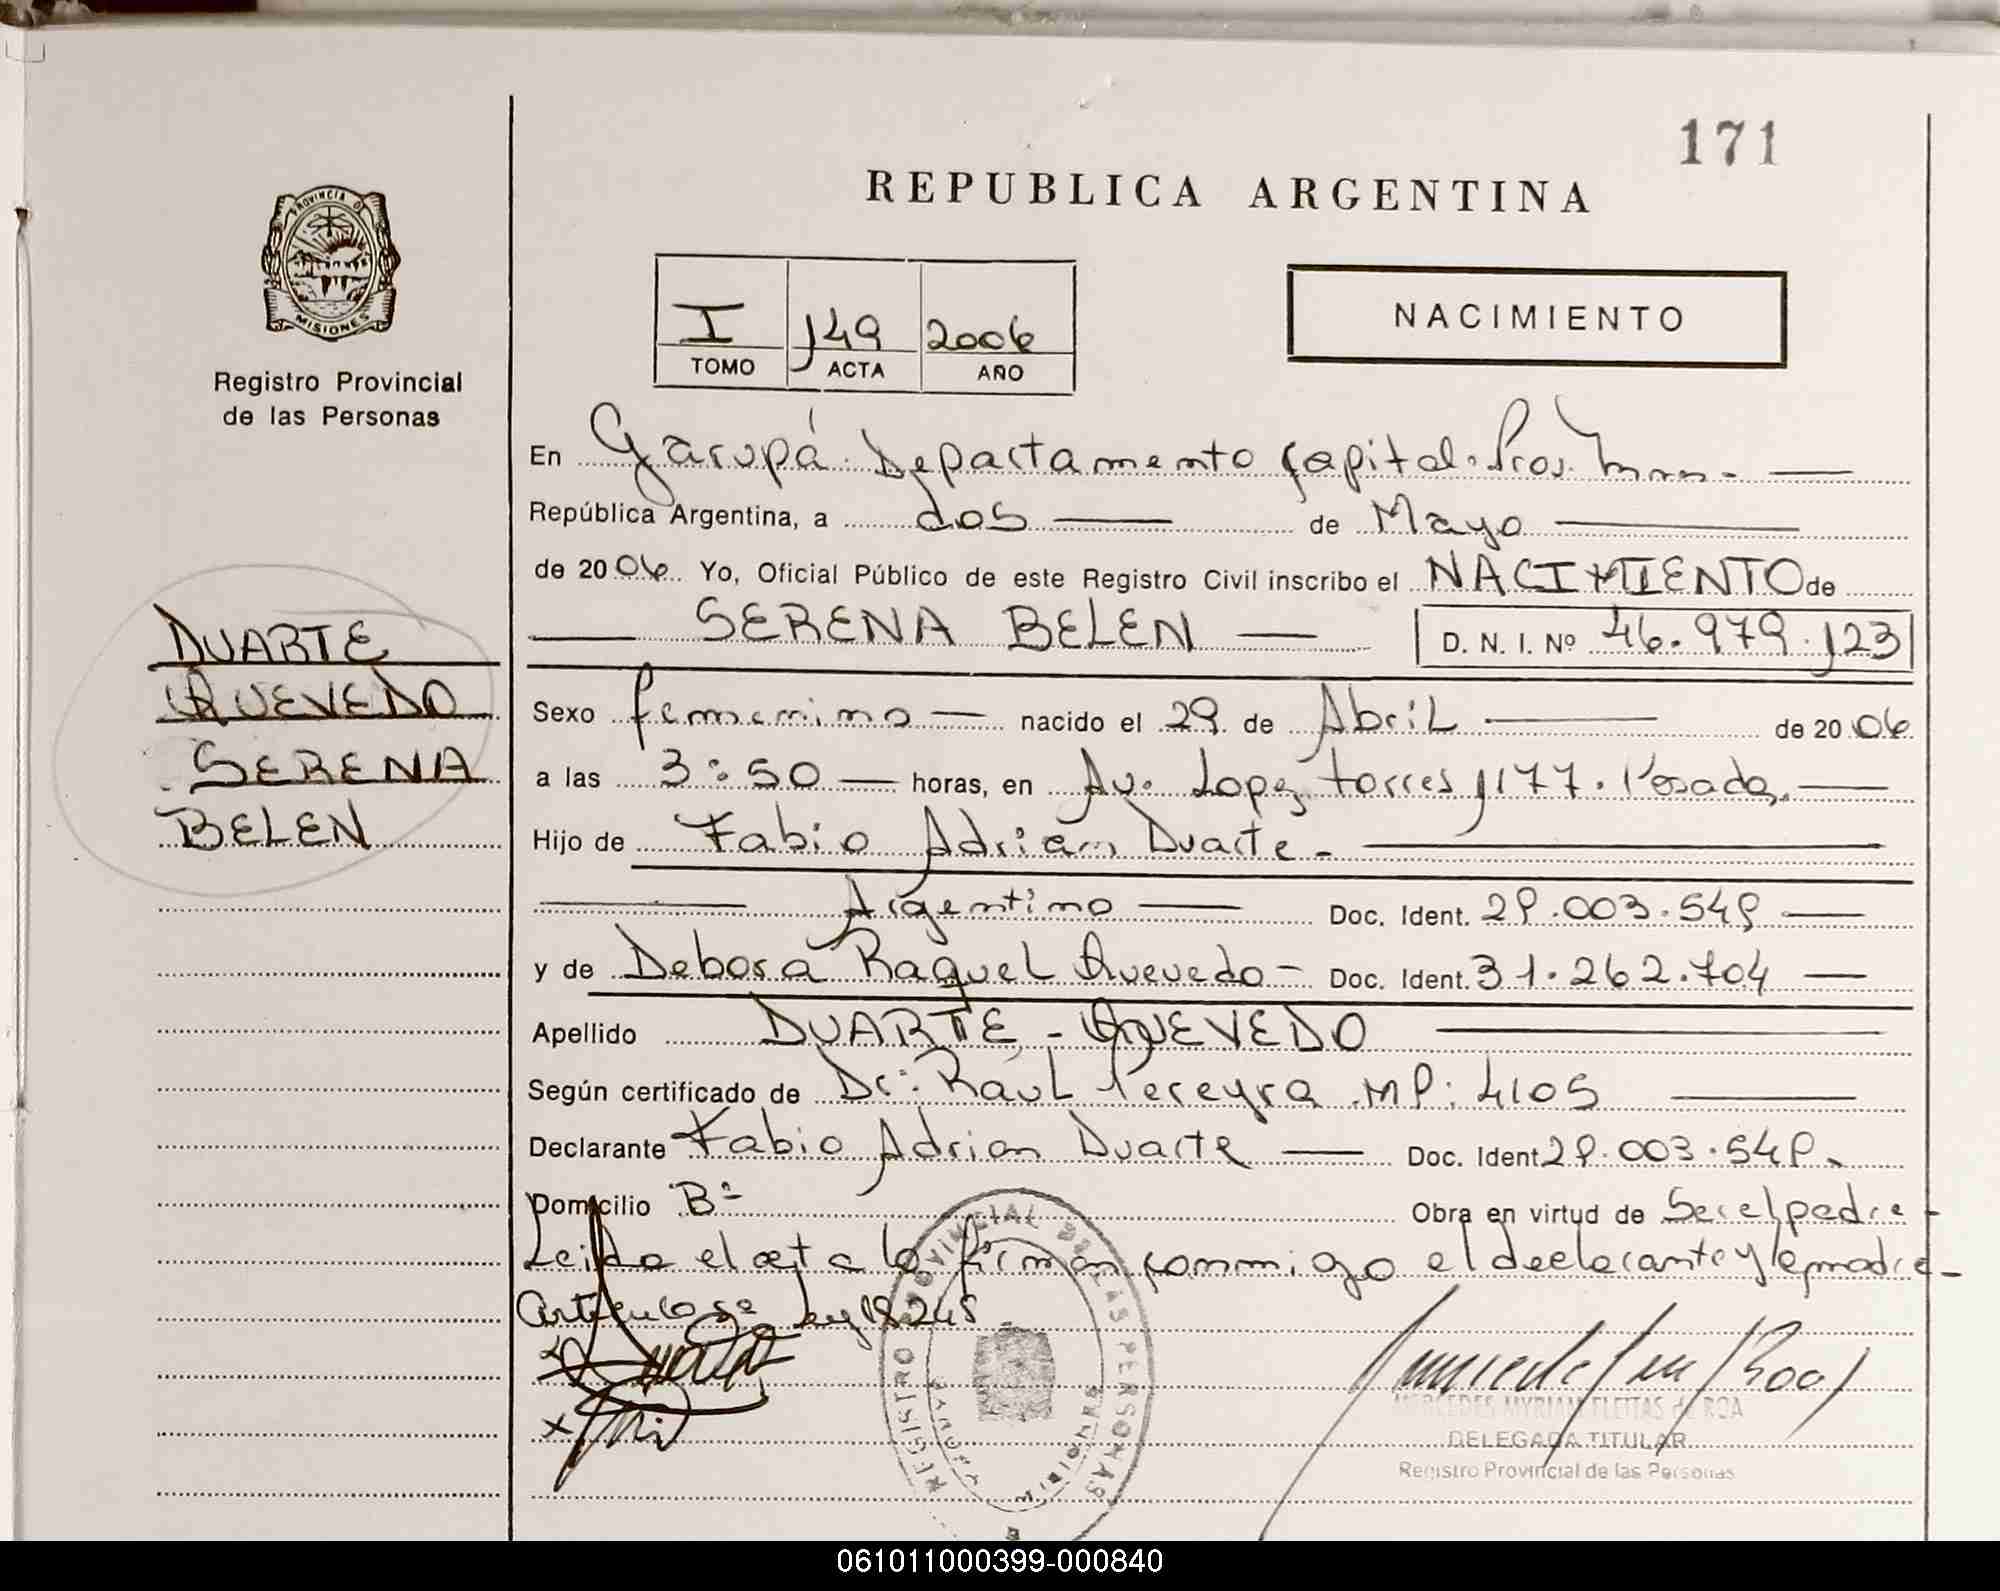 171
REPUBLICA ARGENTINA
PROVINCIA DE
MISIONES
Registro Provincial
de las Personas
I 149 2006
TOMO ACTA AÑO
NACIMIENTO
En Garupá Departamento Capital. Prov. Mnes.
República Argentina, a dos de Mayo
de 2006 Yo, Oficial Público de este Registro Civil inscribo el NACIMIENTO de
SERENA BELEN D. N. I. Nº 46.979.123
DUARTE
QUEVEDO
SERENA
BELEN
Sexo femenino nacido el 29 de Abril de 2006
a las 3:50 horas, en Av. Lopez torres 1177. Posadas.
Hijo de Fabio Adrián Duarte -
Argentino Doc. Ident. 29.003.549
y de Debora Raquel Quevedo - Doc. Ident. 31.262.704
Apellido DUARTE - QUEVEDO
Según certificado de Dr: Raúl Pereyra MP: 4105
Declarante Fabio Adrian Duarte Doc. Ident 29.003.549.
Domicilio Bº Obra en virtud de Ser el padre -
Leida el acta la firman conmigo el declarante y la madre -
Articulo 5º Ley 18248
REGISTRO PROVINCIAL DE LAS PERSONAS
GARUPA
MISIONES
MERCEDES MYRIAM FLEITAS de ROA
DELEGADA TITULAR
Registro Provincial de las Personas
061011000399-000840